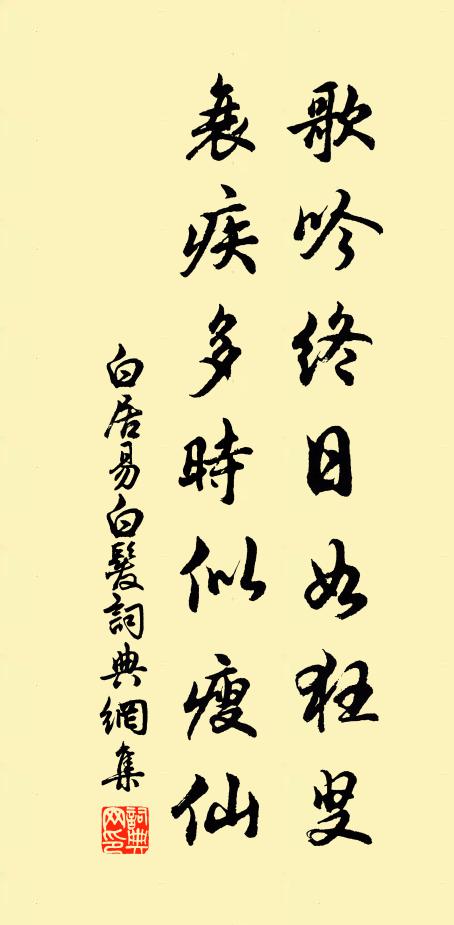 歌吟終日如狂叟
衰疾多時似瘦仙
白居易白髮詞典網集
詞典網印